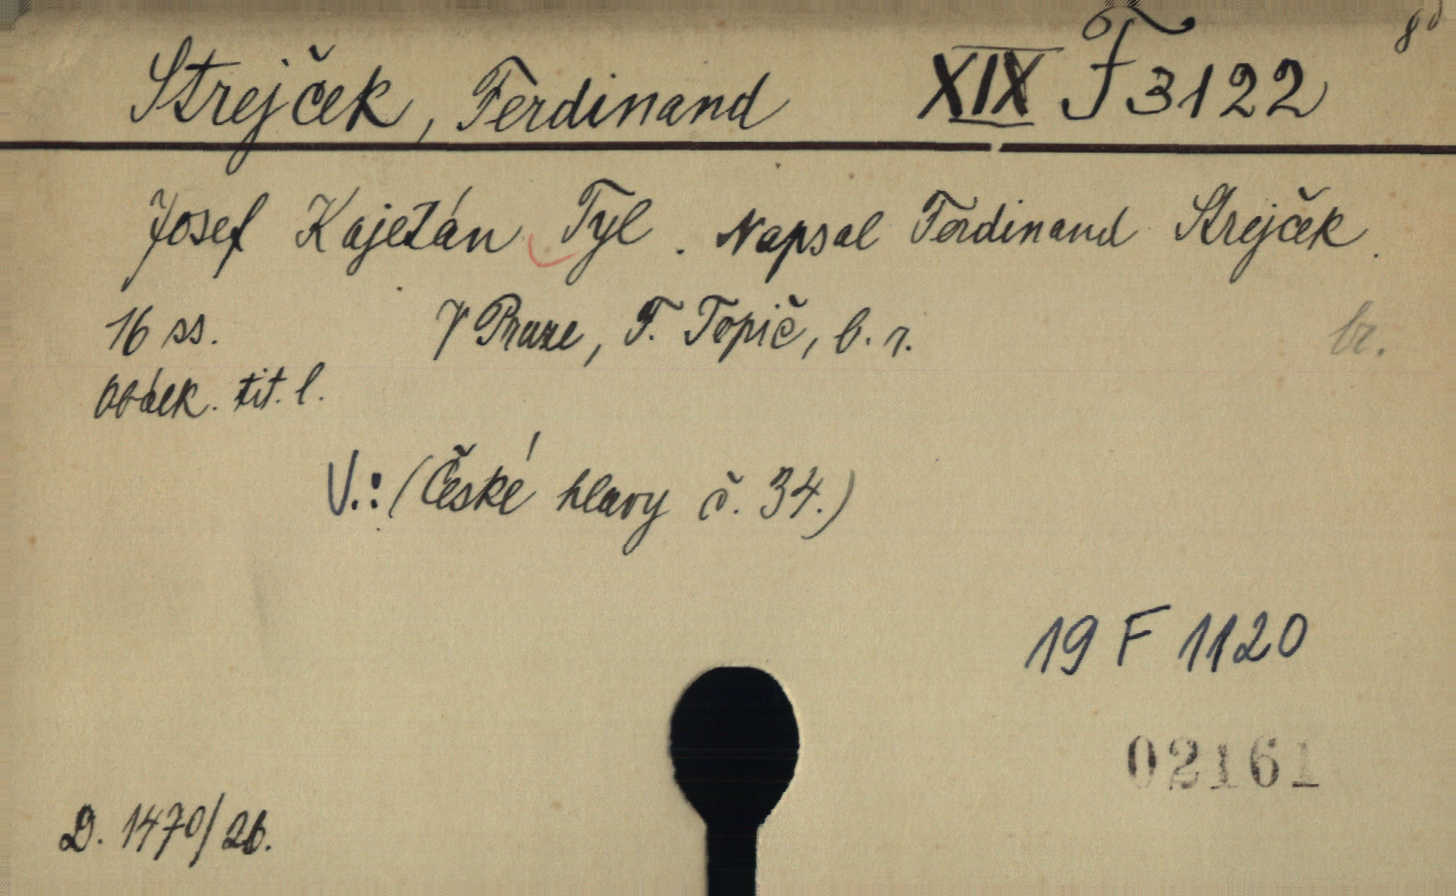 Strejček, Ferdinand XIX F 3122 8°
Josef Kajetán Tyl. Napsal Ferdinand Strejček.
16 ss. V Praze, F. Topič, b. r. br.
Obálk. tit. l.
V.: (České hlavy č. 34.)
19 F 1120
02161
D. 1470/26.